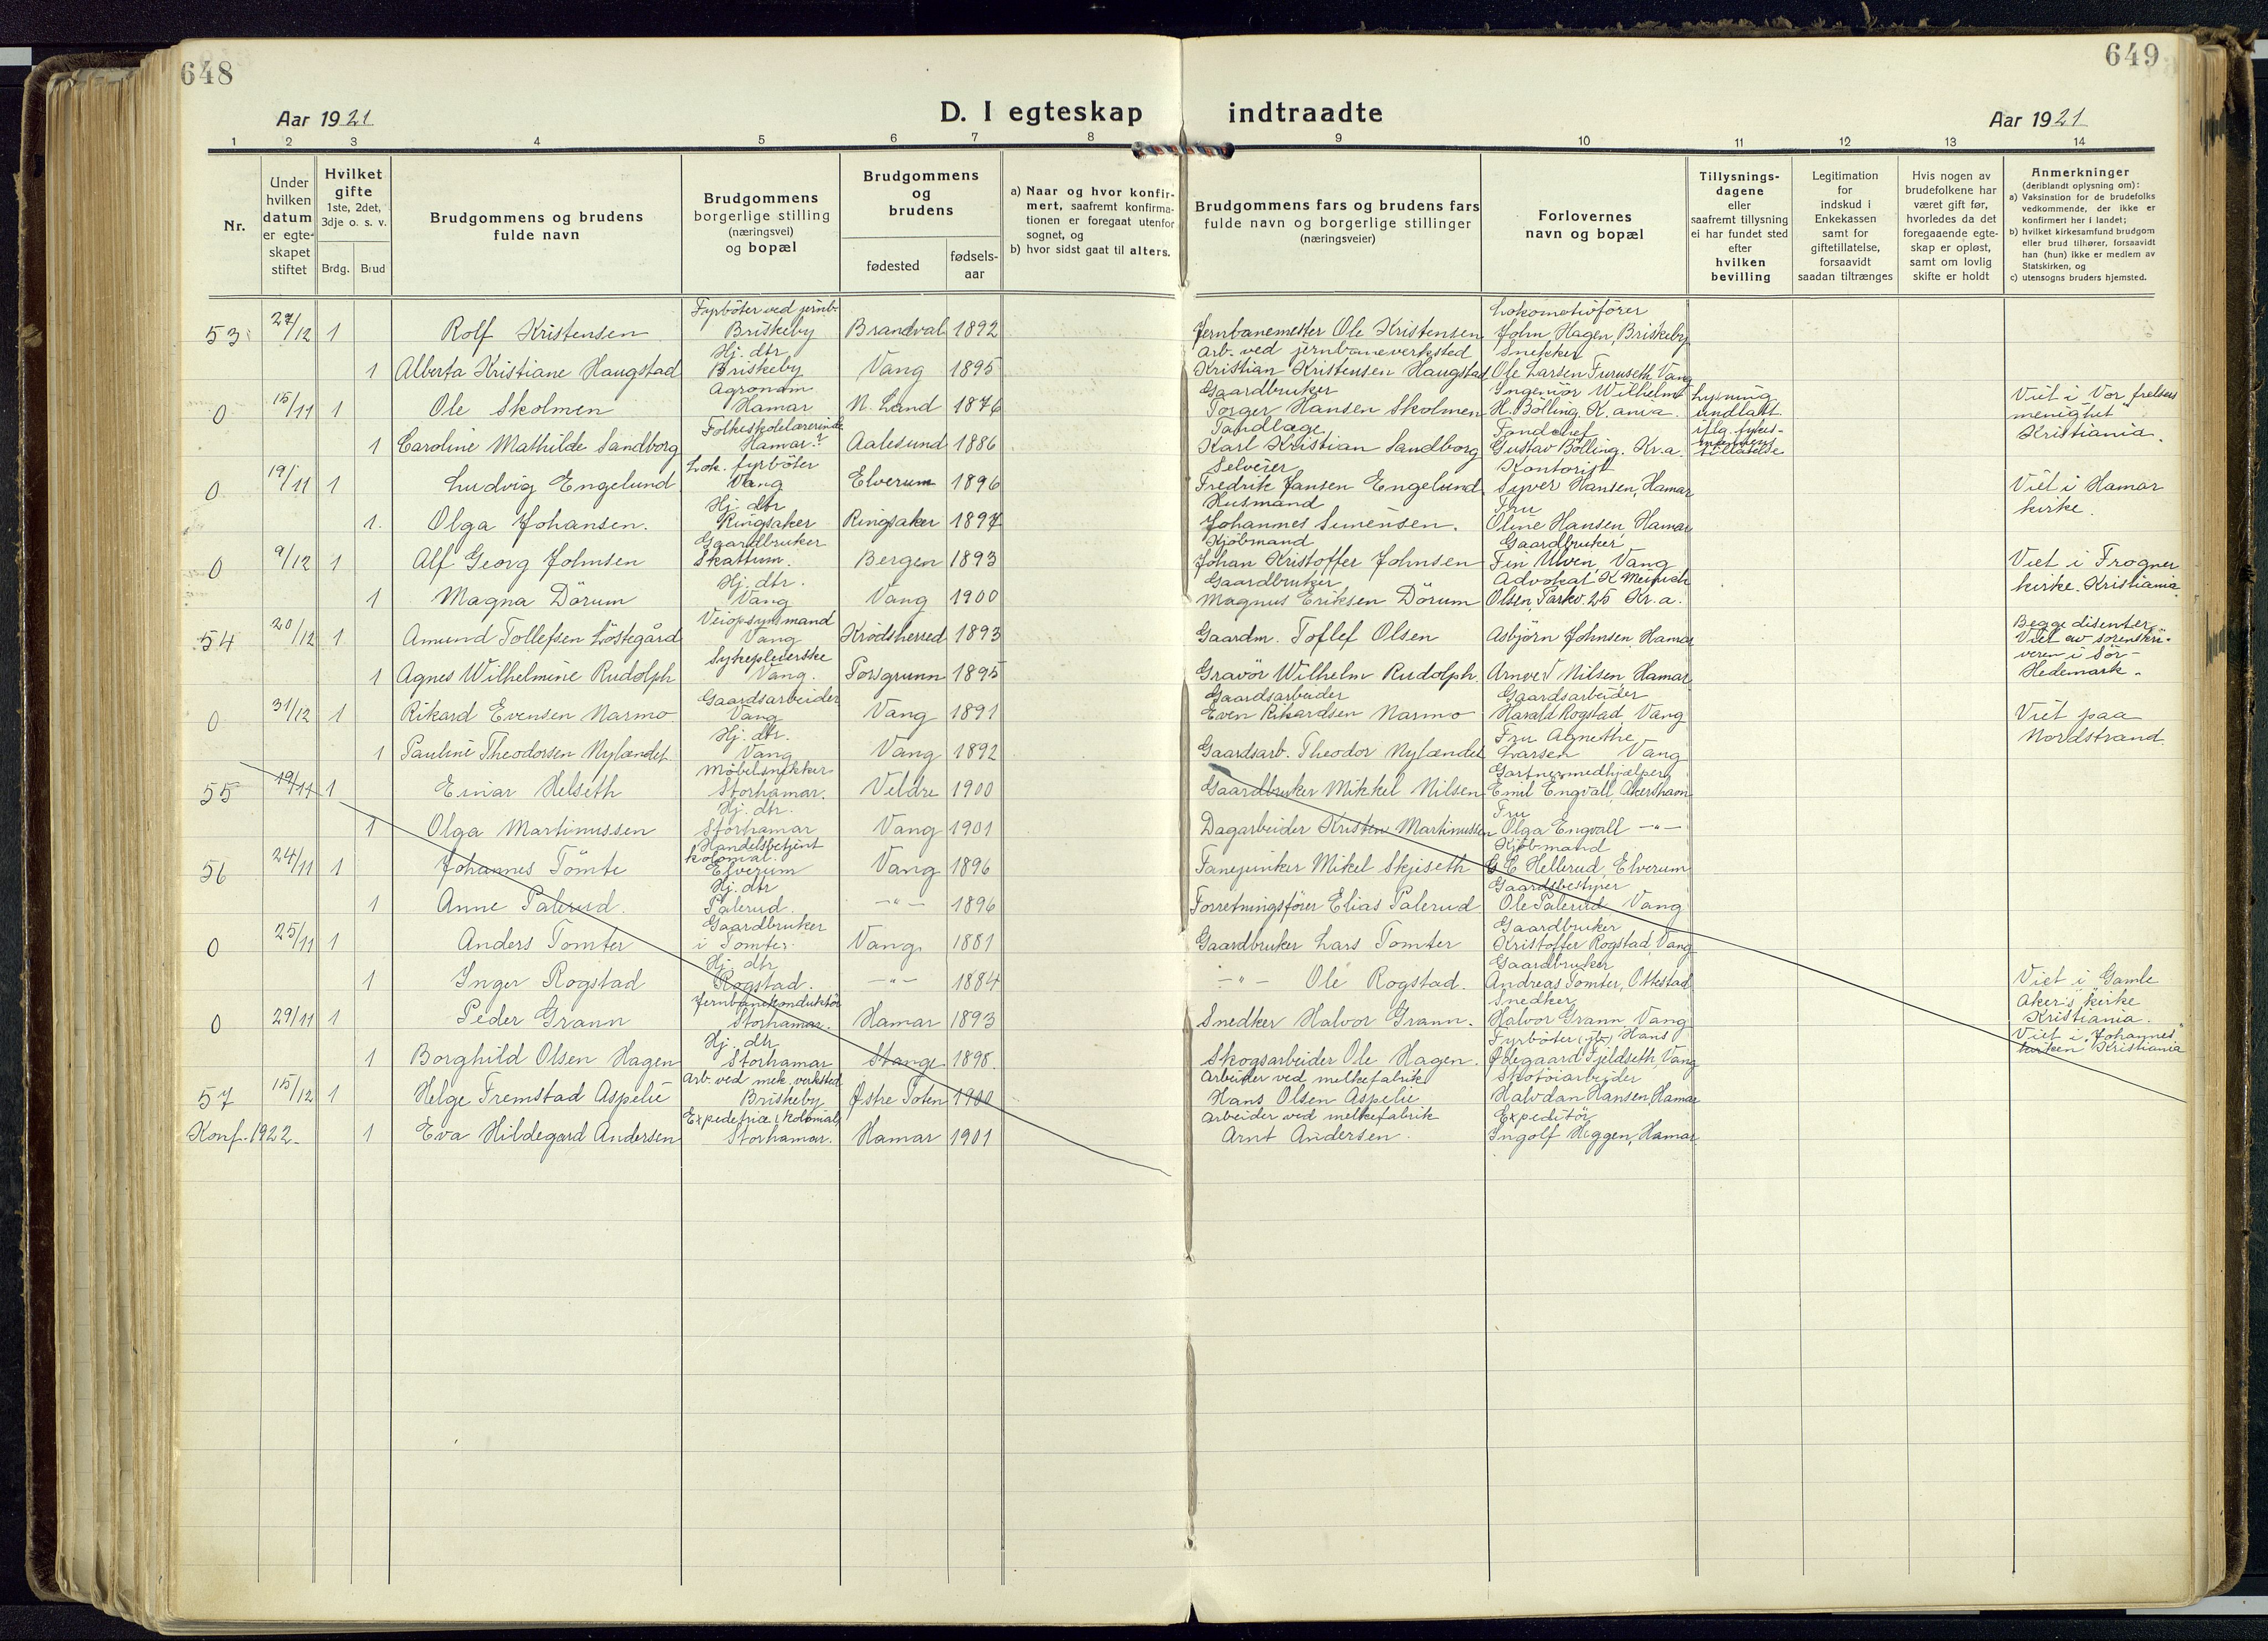 648
649
D. I egteskap indtraadte
Aar 1921
Aar 1921
1 2 3 4 5 6 7 8 9 10 11 12 13 14
Nr.
Under hvilken datum er egteskapet stiftet
Hvilket gifte 1ste, 2det, 3dje o. s. v.
Brdg. Brud
Brudgommens og brudens fulde navn
Brudgommens borgerlige stilling (næringsvei) og bopæl
Brudgommens og brudens
fødested
fødsels-aar
a) Naar og hvor konfirmert, saafremt konfirmationen er foregaat utenfor sognet, og
b) hvor sidst gaat til alters.
Brudgommens fars og brudens fars fulde navn og borgerlige stillinger (næringsveier)
Forlovernes navn og bopæl
Tillysningsdagene eller saafremt tillysning ei har fundet sted efter hvilken bevilling
Legitimation for indskud i Enkekassen samt for giftetillatelse, forsaavidt saadan tiltrænges
Hvis nogen av brudefolkene har været gift før, hvorledes da det foregaaende egteskap er opløst, samt om lovlig skifte er holdt
Anmerkninger (deriblandt oplysning om):
a) Vaksination for de brudefolks vedkommende, der ikke er konfirmert her i landet;
b) hvilket kirkesamfund brudgom eller brud tilhører, forsaavidt han (hun) ikke er medlem av Statskirken, og
c) utensogns bruders hjemsted.
53 27/12 1 Rolf Kristensen Fyrböter ved jernb. Briskeby Brandval 1892 Jernbanemester Ole Kristensen Lokomotivförer John Hagen, Briskeby
1 Alberta Kristiane Haugstad Hj. dtr Briskeby Vang 1895 Arb. ved jernbaneverksted Kristian Kristensen Haugstad Snekker Ole Larsen Furuseth, Vang
0 15/11 1 Ole Skolmen Agronom Hamar N. Land 1876 Gaardbruker Torger Hansen Skolmen Ingeniör Wilhelm H. Bölling, Kr.ania. Lysning undlatt Viet i Vor frelsers menighet
1 Caroline Mathilde Sandborg Folkeskolelærerinde Hamar Aalesund 1886 Tandlæge Karl Kristian Sandborg Gustav Bölling. Kr.a. Kristiania.
0 19/11 1 Ludvig Engelund Lok. fyrböter Vang Elverum 1896 Selveier Fredrik Jansen Engelund Kontorist Syver Hansen, Hamar Viet i Hamar
1. Olga Johansen. Hj. dtr Ringsaker Ringsaker 1897 Husmand Johannes Simensen. Fru Oline Hansen, Hamar kirke.
0 9/12 1 Alf Georg Johnsen Gaardbruker Skattum. Bergen 1893 Kjöbmand Johan Kristoffer Johnsen Gaardbruker Fin Ulven, Vang Viet i Frogner
1 Magna Dörum Hj. dtr. Vang Vang 1900 Gaardbruker Magnus Eriksen Dörum Advokat K Meinich Olsen, Parkv. 25 Kr.a. kirke. Kristiania
54 20/12 1 Amund Tollefsen Löstegård Veiopsynsmand Vang Krödsherred 1893 Gaardm. Tollef Olsen Asbjörn Johnsen, Hamar Begge disenter Viet av sorenskri-
1 Agnes Wilhelmine Rudolph Sykepleierske Vang. Porsgrunn 1895 Gravör Wilhelm Rudolph. Nilsen Hamar veren i Sör-Hedemark.
0 31/12 1 Rikard Evensen Narmo Gaardsarbeider Vang Vang 1891 Gaardsarbeider Even Rikardsen Narmo Gaardsarbeider Harald Rogstad, Vang Viet paa
1 Pauline Theodorsen Nylændet Hj. dtr. Vang Vang 1892 Gaardsarb. Theodor Nylændet Fru Agnethe Larsen Vang Nordstrand.
55 19/11 1 Einar Helseth Möbelsnekker Storhamar. Veldre 1900 Gaardbruker Mikkel Nilsen Gartnermedhjælper Emil Engvall, Akershavn
1 Olga Martinussen Hj. dtr. Storhamar Vang 1901 Dagarbeider Kristen Martinussen Fru Olga Engvall -"-
56 24/11 1 Johannes Tömte Handelsbetjent kolonial. Elverum Vang 1896 Fanejunker Mikel Skjiseth Kjöbmand G C Hellerud, Elverum
1 Anne Palerud. Hj. dtr Palerud. -"- 1896 Forretningsförer Elias Palerud Gaardsbestyrer Ole Palerud Vang
0 25/11 1 Anders Tomter Gaardbruker i Tomter. Vang 1881 Gaardbruker Lars Tomter Gaardbruker Kristoffer Rogstad, Vang
1 Inger Rogstad Hj. dtr Rogstad. -"- 1884 -"- Ole Rogstad. Gaardbruker Andreas Tomter, Ottestad Viet i "Gamle Akers" kirke
0 29/11 1 Peder Grann Jernbanekonduktör Storhamar. Hamar 1893 Snedker Halvor Grann. Snedker Halvor Grann Vang Kristiania.
1 Borghild Olsen Hagen Hj. dtr Storhamar Stange 1898. Skogsarbeider Ole Hagen. Fyrböter Hans Ødegaard Fjeldseth, Vang Viet i "Johannes" kirken Kristiania
57 15/12 1 Helge Fremstad Aspelie Arb. ved mek. verksted Briskeby Østre Toten 1900 Arbeider ved melkefabrik Hans Olsen Aspelie Skotöiarbeider Halvdan Hansen, Hamar
Konf. 1922. 1 Eva Hildegard Andersen Expeditrice i kolonial Storhamar. Hamar 1901 Arbeider ved melkefabrik Arnt Andersen. Expeditör Ingolf Heggen, Hamar